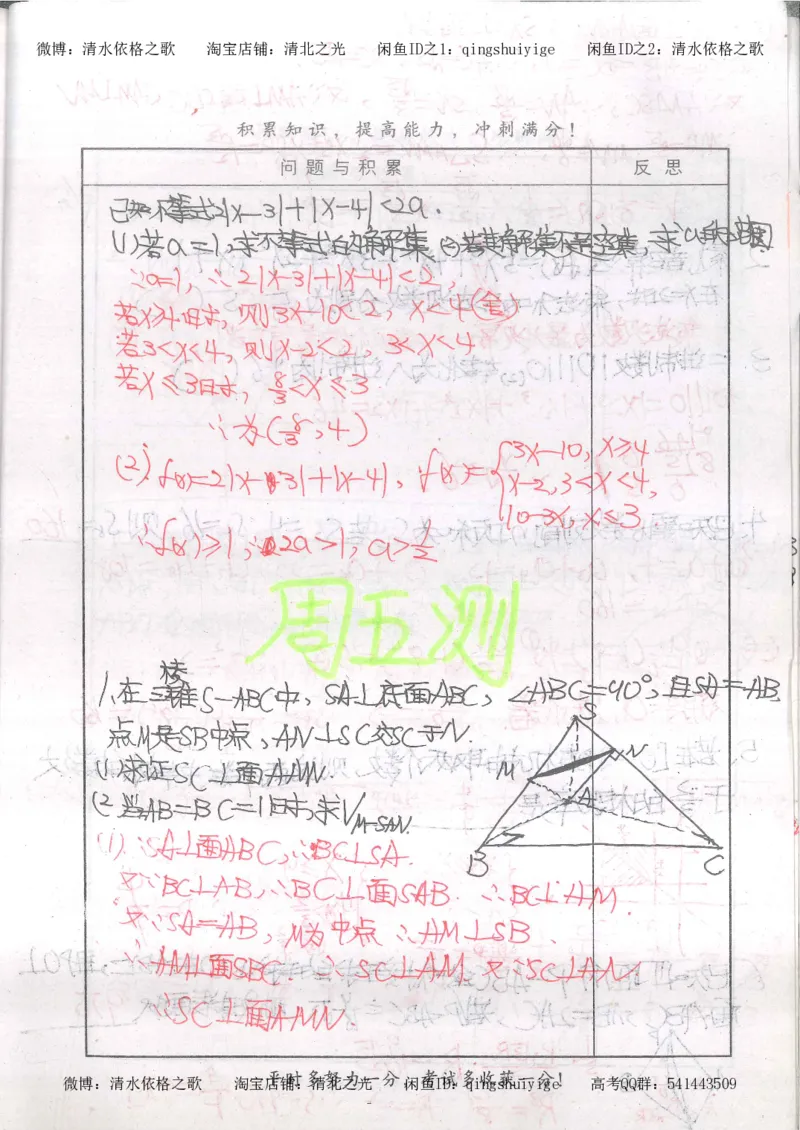 微博：清水依格之歌 淘宝店铺：清北之光 闲鱼ID之1：qingshuiyige 闲鱼ID之2：清水依格之歌
积累知识，提高能力，冲刺满分！
问题与积累 反思
已知不等式2|x-3|+|x-4|<2a.
(1)若a=1,求不等式的解集 (2)若其解集不是空集,求a的范围.
∵a=1,∴2|x-3|+|x-4|<2,
若x≥4时,则3x-10<2,x<4(舍)
若3<x<4,则x-2<2,3<x<4
若x≤3时,8/3<x≤3
∴为(8/3,4)
(2)f(x)=2|x-3|+|x-4|,f(x)={3x-10,x≥4
x-2,3<x<4,
10-3x,x≤3
∵f(x)≥1,∴2a>1,a>1/2
周五测
1.在三棱锥S-ABC中,SA⊥底面ABC,∠ABC=90°,且SA=AB,
点M是SB中点,AN⊥SC交SC于N.
(1)求证SC⊥面AMN.
(2)当AB=BC=1时,求V_{M-SAN}.
S
N
M
A
B
C
(1)∵SA⊥面ABC,∴BC⊥SA.
又∵BC⊥AB,∴BC⊥面SAB.∴BC⊥AM.
又∵SA=AB,M为中点∴AM⊥SB.
∴AM⊥面SBC.∴SC⊥AM 又∵SC⊥AN
∴SC⊥面AMN.
平时多努力一分，考试多收获一分！
微博：清水依格之歌 淘宝店铺：清北之光 闲鱼ID：qingshuiyige 高考QQ群：541443509